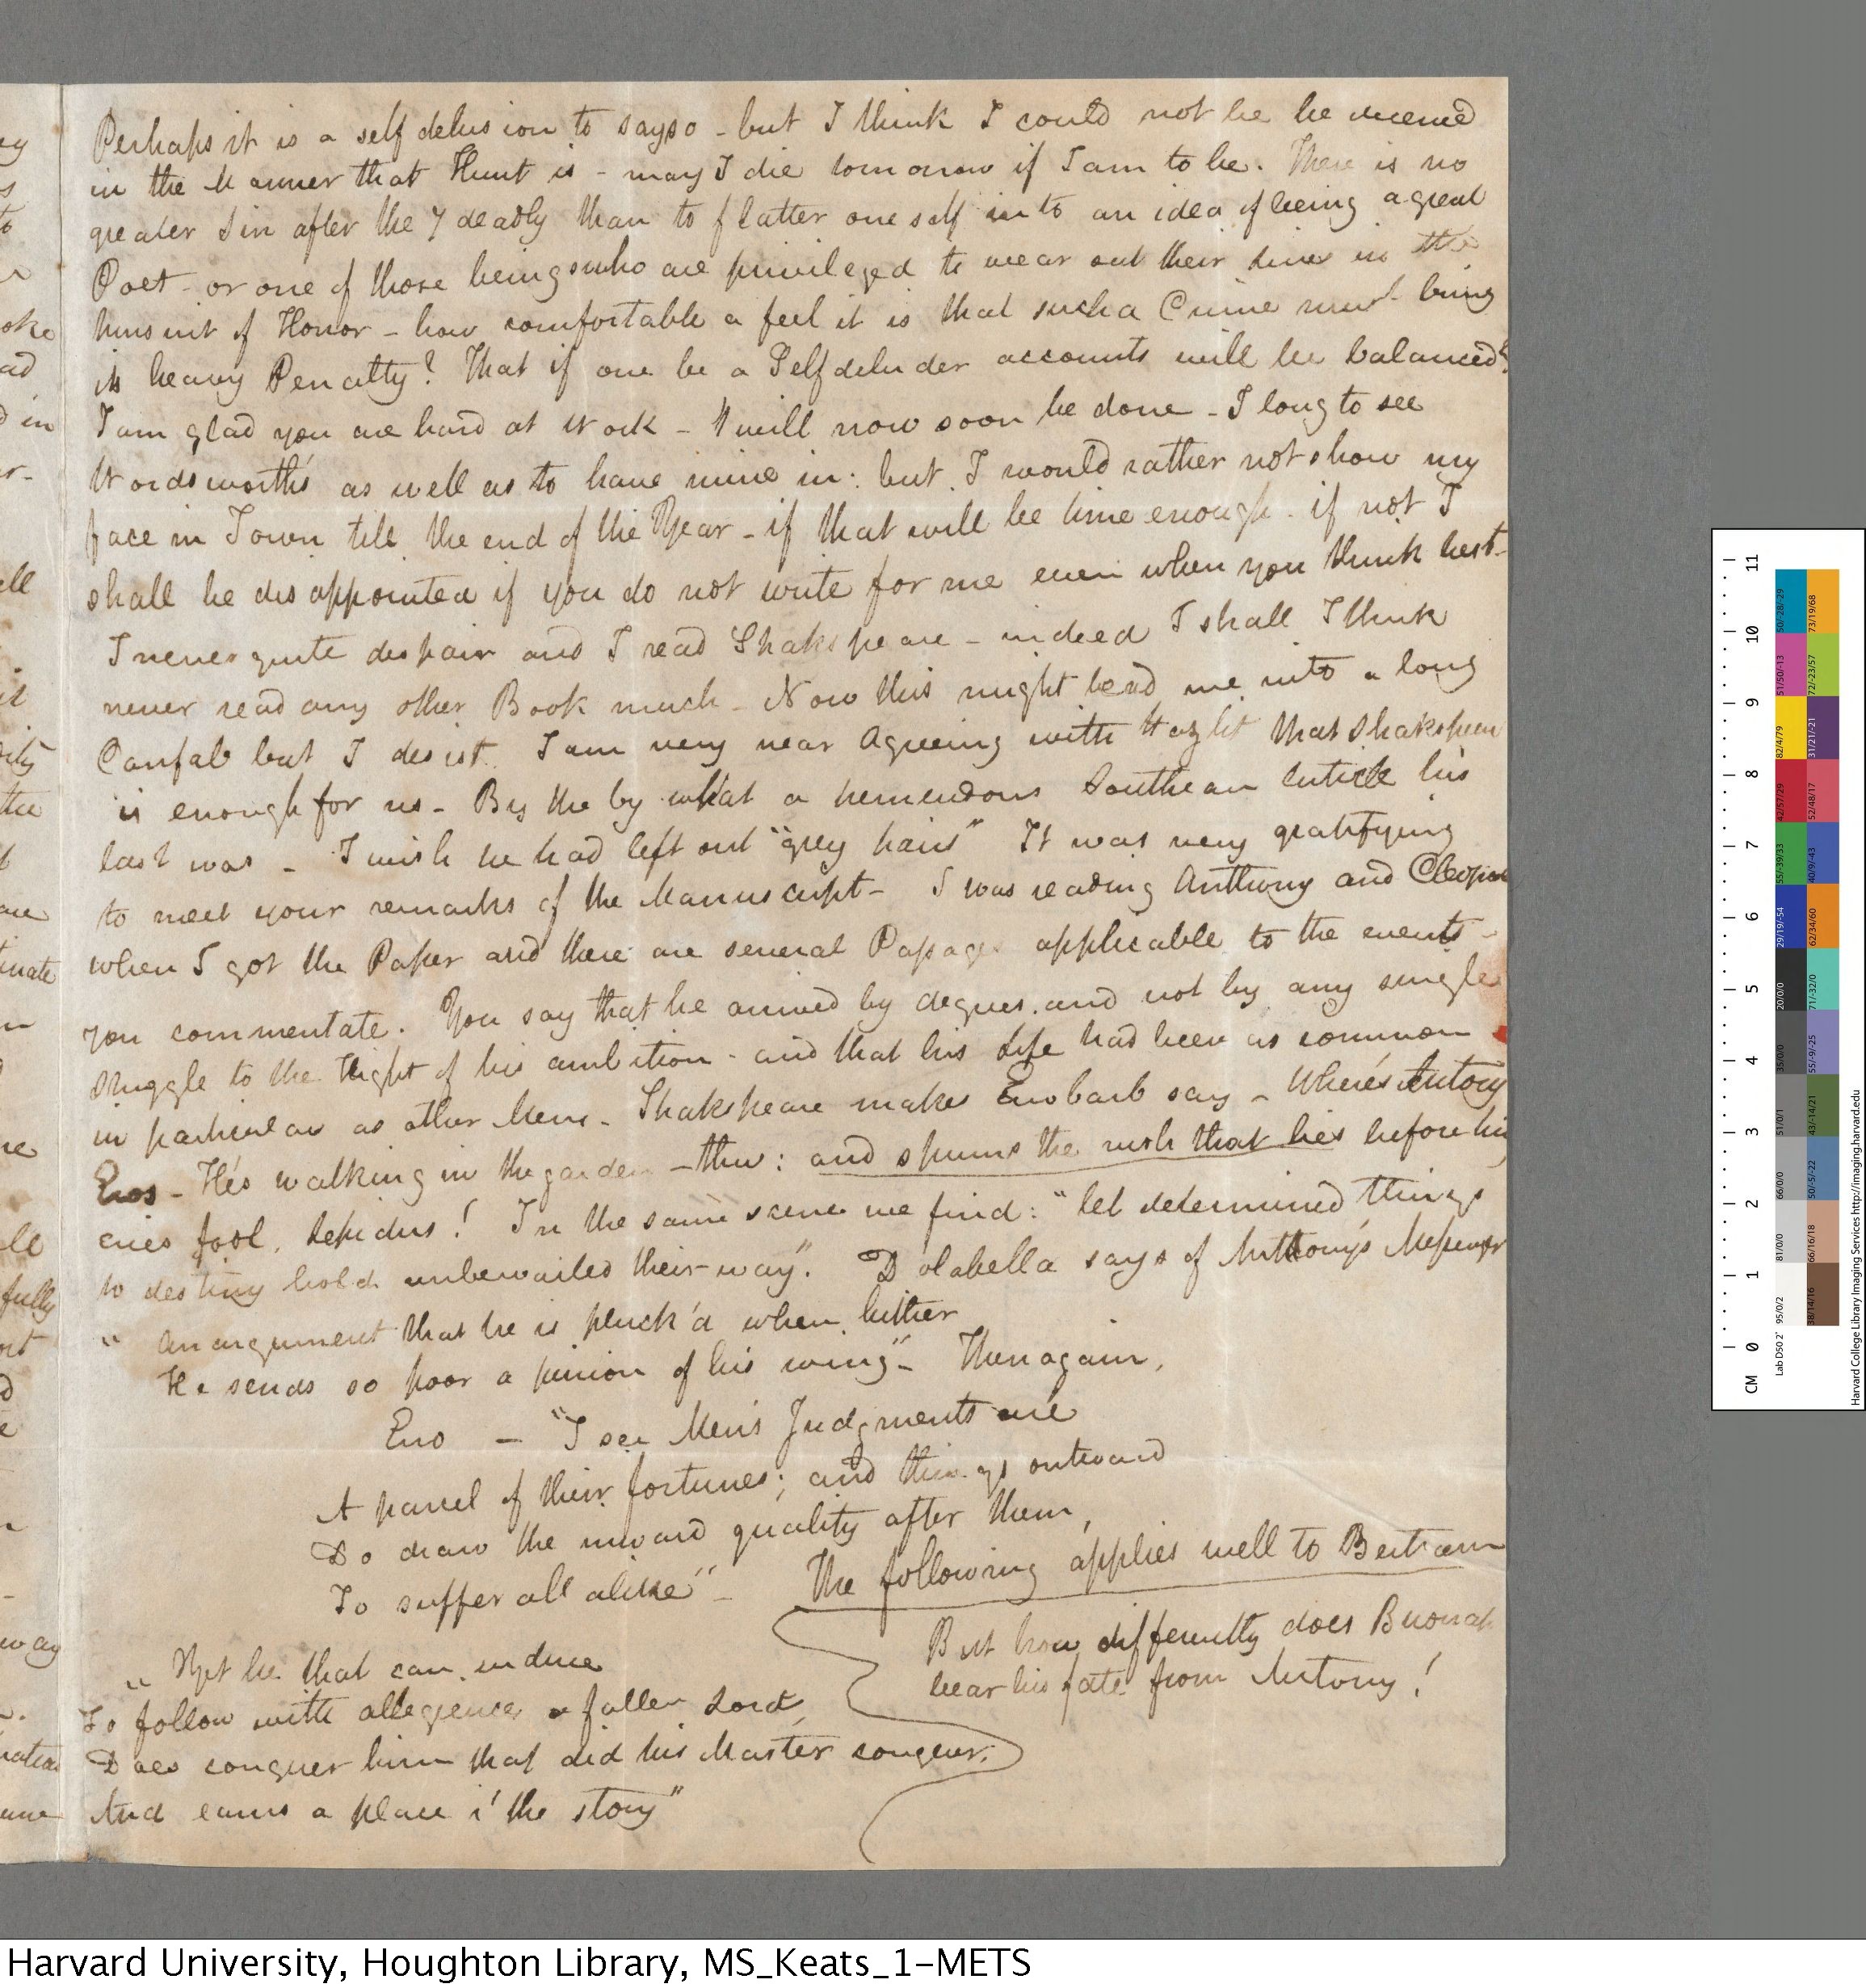 Perhaps it is a self delusion to say so – but I think I could not be be deceived
in the Manner that Hunt is – may I die tomorrow if I am to be. There is no
greater Sin after the 7 deadly than to flatter oneself into an idea of being a great
Poet – or one of those beings who are privileged to wear out their Lives in the
pursuit of Honor – how comfortable a feel it is that such a Crime must bring
its heavy Penalty? That if one be a Selfdeluder accounts will be balanced?
I am glad you are hard at Work – 't will now soon be done – I long to see
Wordsworth's as well as to have mine in: but I would rather not show my
face in Town till the end of the Year – if that will be time enough – if not I
shall be disappointed if you do not write for me even when you think best –
I never quite despair and I read Shakspeare – indeed I shall I think
never read any other Book much – Now this might lead me into a long
Confab but I desist. I am very near Agreeing with Hazlit that Shakspeare
is enough for us – By the by what a tremendous Southean Article his
last was – I wish he had left out "grey hairs" It was very gratifying
to meet your remarks of the Manuscript – I was reading Anthony and Cleopat
when I got the Paper and there are several Passages applicable to the events
you commentate. You say that he arrived by degrees, and not by any single
Struggle to the height of his ambition – and that his Life had been as common
in particulars as other Mens – Shakspeare makes Enobarb say – Where's Antony
Eros – He's walking in the garden – thus: and spurns the rush that lies before him,
cries fool, Lepidus! In the same scene we find: "let determined things
to destiny hold unbewailed their way". Dolabella says of Anthony's Messenger
" An argument that he is pluck'd when hither
He sends so poor a pinion of his wing" – Then again,
Eno – "I see Men's Judgments are
A parcel of their fortunes; and things outward
Do draw the inward quality after them,
To suffer all alike" – The following applies well to Bertram
"Yet he that can endure
To follow with allegience a fallen Lord,
Does conquer him that did his Master conquer,
And earns a place i' the story"
But how differently does Buonap
bear his fate from Antony!
oke
ad
d in
ell
fully
way
11
10
9
8
7
6
5
4
3
2
1
0
CM
Harvard College Library Imaging Services http://imaging.harvard.edu
Harvard University, Houghton Library, MS_Keats_1-METS